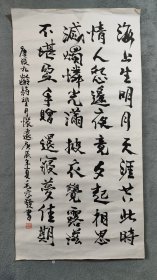 海上生明月天涯共此時
情人怨遥夜竟夕起相思
滅燭憐光滿披衣覺露滋
不堪盈手贈還寢夢佳期
唐張九齡詩望月懷遠庚辰年夏